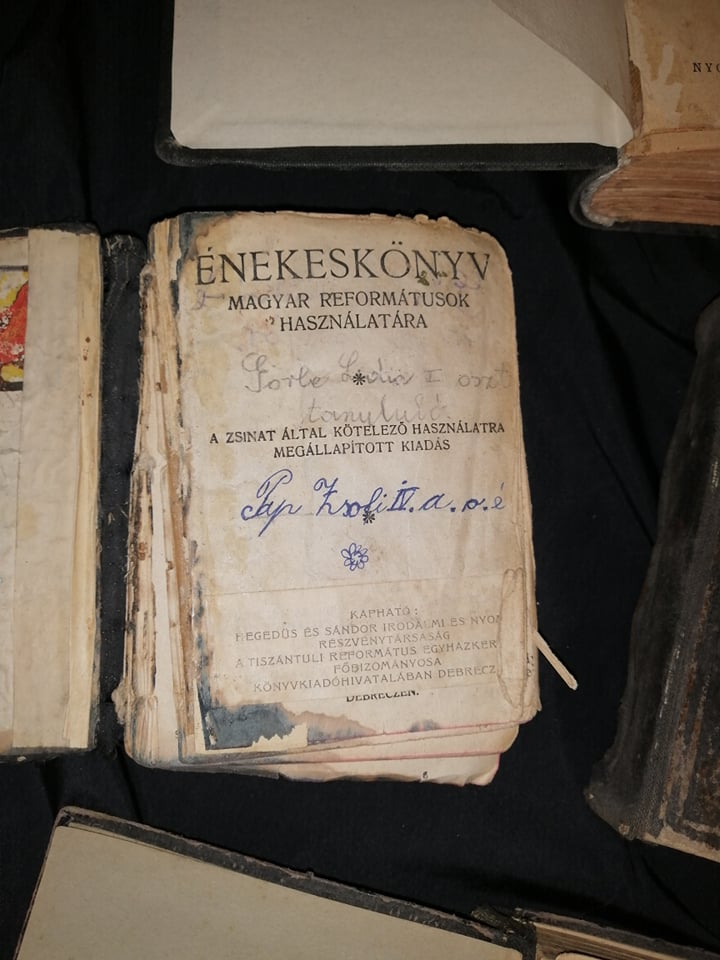 NYO
ÉNEKESKÖNYV
MAGYAR REFORMÁTUSOK
HASZNÁLATÁRA
I oszt
A ZSINAT ÁLTAL KÖTELEZŐ HASZNÁLATRA
MEGÁLLAPÍTOTT KIADÁS
Pap Zsoli IV. a. o. é
KAPHATÓ:
HEGEDŰS ÉS SÁNDOR IRODALMI ÉS NYOM
RÉSZVÉNYTÁRSASÁG
A TISZÁNTÚLI REFORMÁTUS EGYHÁZKER
FŐBIZOMÁNYOSA
KÖNYVKIADÓHIVATALÁBAN DEBRECZ
DEBRECZEN.